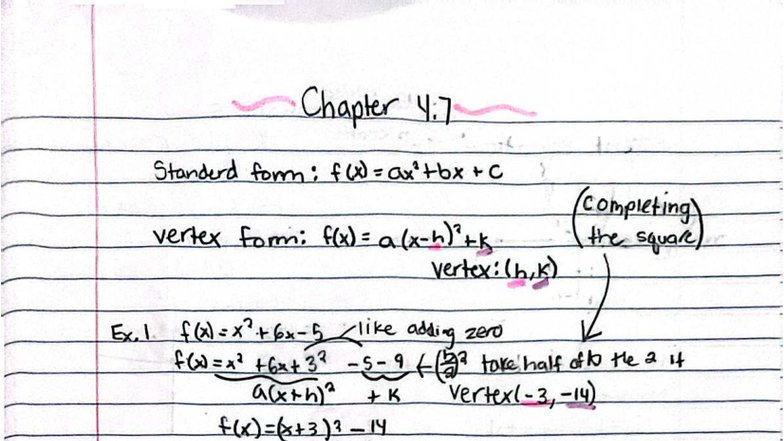 Chapter 4.7
Standerd form: f(x) = ax²+bx+c
(completing the square)
vertex form: f(x) = a(x-h)²+k
vertex: (h,k)
Ex. 1. f(x) = x²+6x-5 like adding zero
f(x) = x² +6x+3² -5-9 ← (b/2)² take half of b the 2 it
a(x+h)² + k vertex(-3,-14)
f(x)=(x+3)² -14